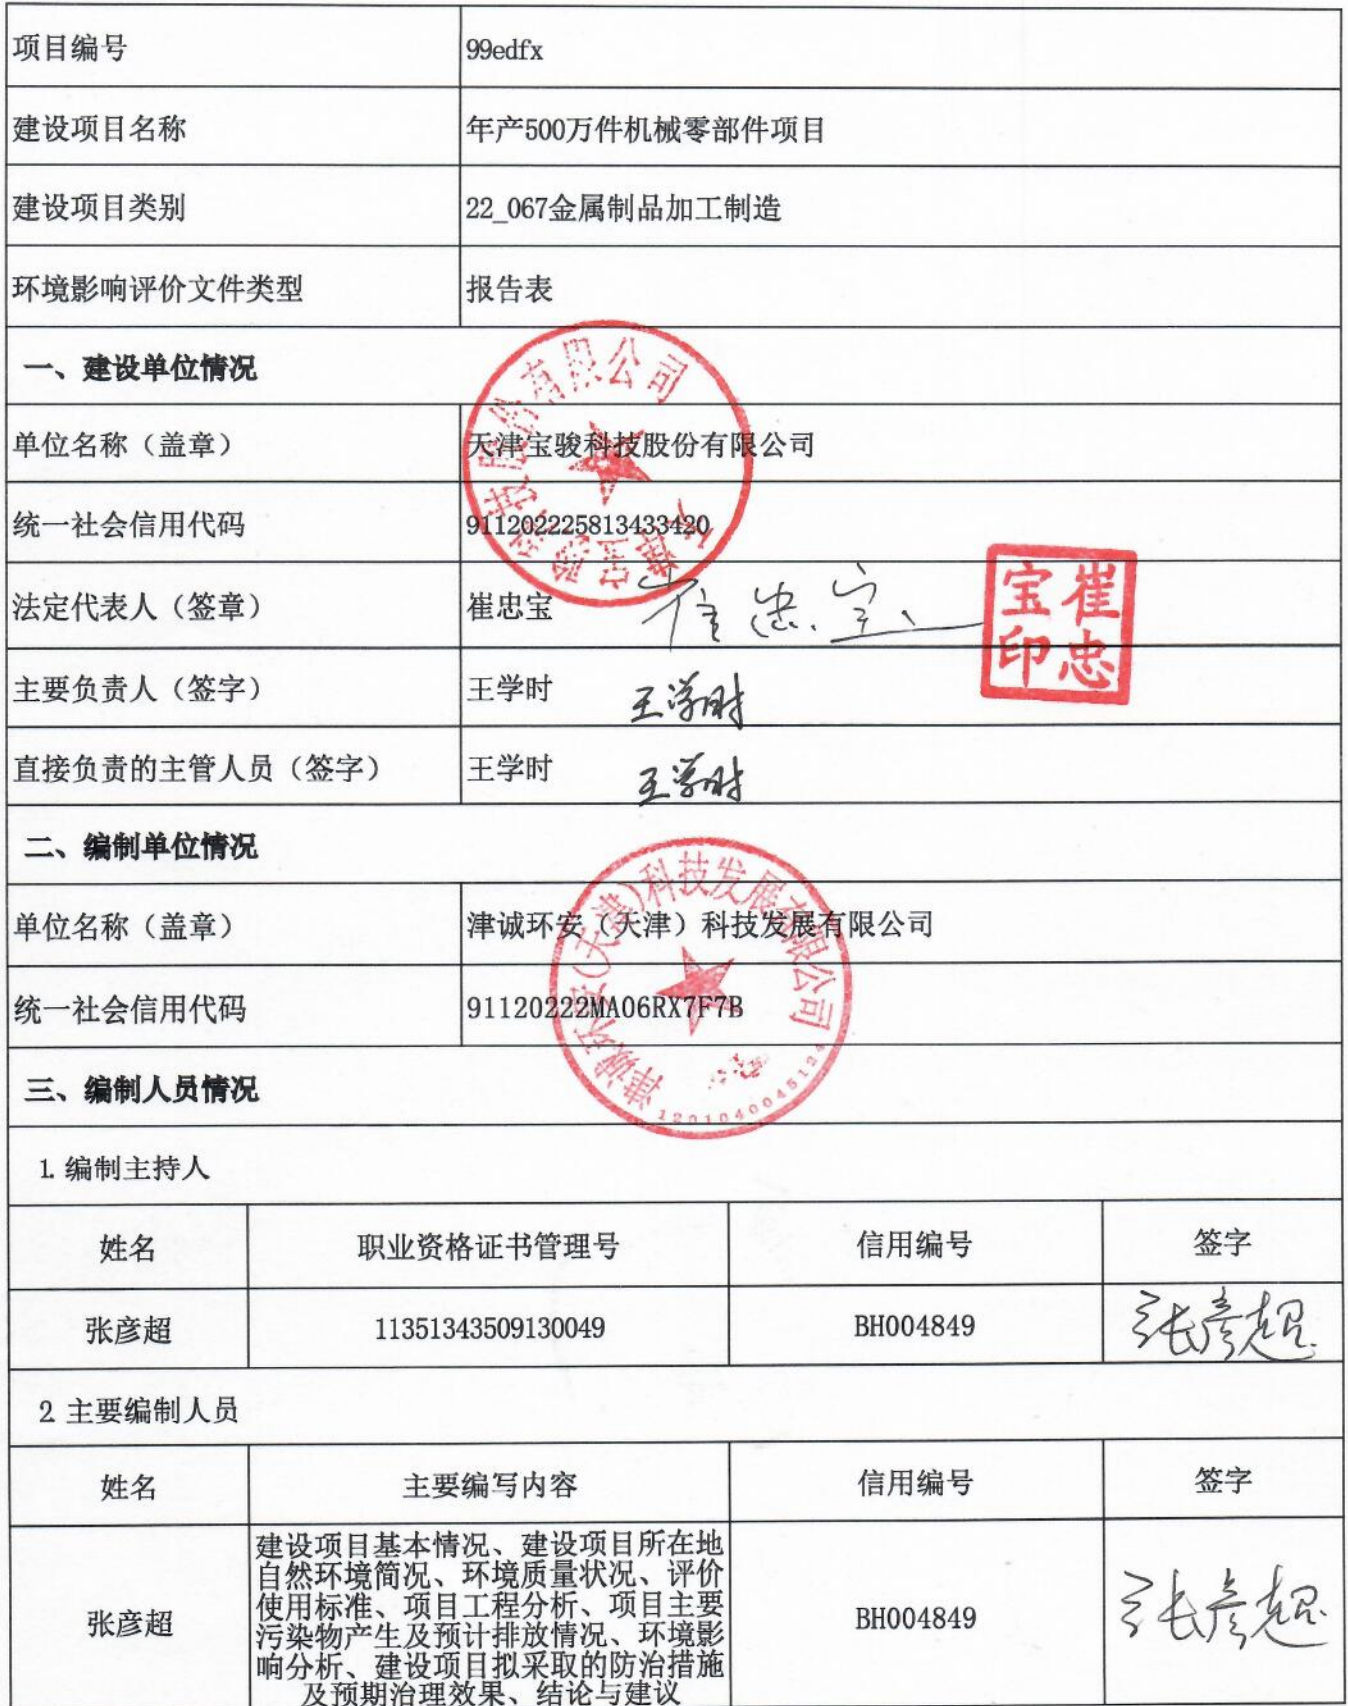 项目编号 99edfx
建设项目名称 年产500万件机械零部件项目
建设项目类别 22_067金属制品加工制造
环境影响评价文件类型 报告表
一、建设单位情况
单位名称（盖章） 天津宝骏科技股份有限公司
统一社会信用代码 911202225813433420
法定代表人（签章） 崔忠宝 崔忠宝
崔忠宝印
主要负责人（签字） 王学时 王学时
直接负责的主管人员（签字） 王学时 王学时
二、编制单位情况
单位名称（盖章） 津诚环安（天津）科技发展有限公司
统一社会信用代码 91120222MA06RX7F7B
天津宝骏科技股份有限公司
津诚环安(天津)科技发展有限公司
1201040045124
三、编制人员情况
1.编制主持人
姓名 职业资格证书管理号 信用编号 签字
张彦超 11351343509130049 BH004849 张彦超
2.主要编制人员
姓名 主要编写内容 信用编号 签字
建设项目基本情况、建设项目所在地
自然环境简况、环境质量状况、评价
使用标准、项目工程分析、项目主要
张彦超 污染物产生及预计排放情况、环境影 BH004849 张彦超
响分析、建设项目拟采取的防治措施
及预期治理效果、结论与建议